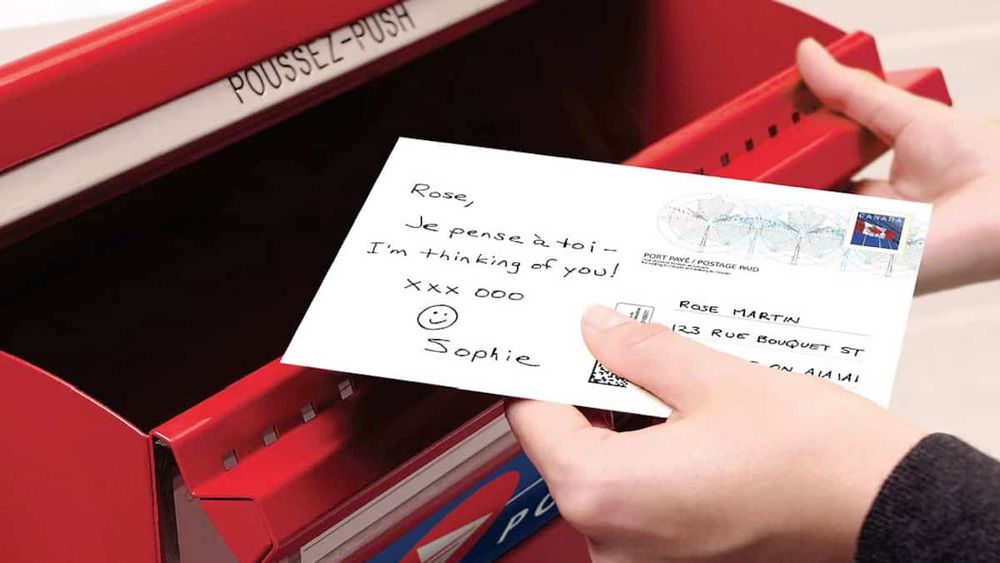 POUSSEZ-PUSH
Rose,
Je pense à toi –
I'm thinking of you!
xxx ooo
Sophie
CANADA
PORT PAYÉ / POSTAGE PAID
ROSE MARTIN
123 RUE BOUQUET ST
ON A1A 1A1
PO